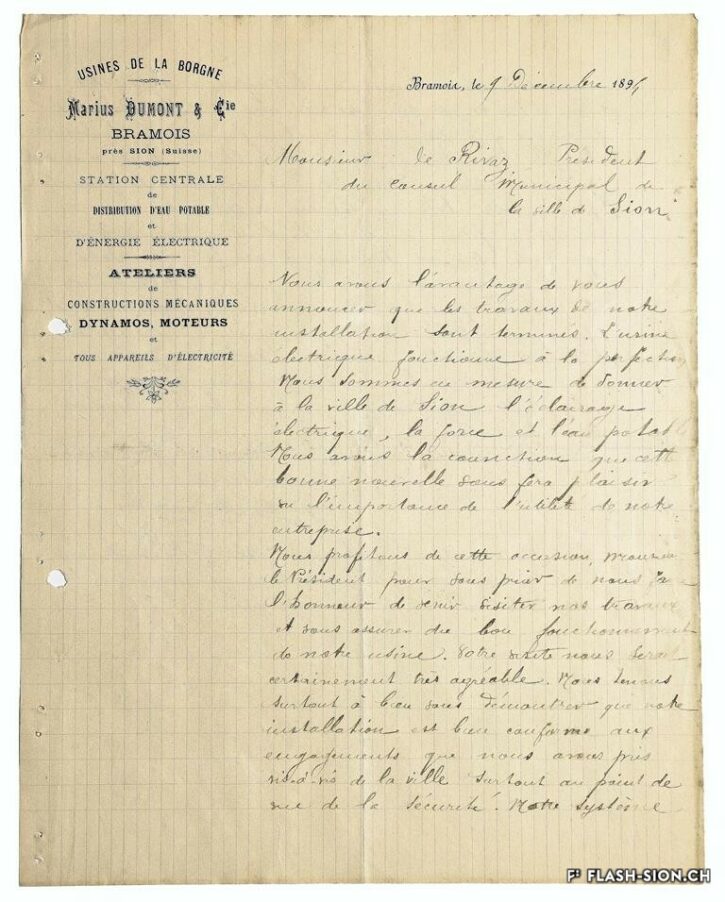 USINES DE LA BORGNE
Marius DUMONT & Cie
BRAMOIS
près SION (Suisse)
STATION CENTRALE
de
DISTRIBUTION D'EAU POTABLE
et
D'ÉNERGIE ÉLECTRIQUE
ATELIERS
de
CONSTRUCTIONS MÉCANIQUES
DYNAMOS, MOTEURS
et
TOUS APPAREILS D'ÉLECTRICITÉ
Bramois, le 9 Décembre 189
Monsieur de Rivaz Président
du Conseil Municipal de
la ville de Sion
Nous avons l'avantage de vous
annoncer que les travaux de notre
installation sont terminés. L'usine
électrique fonctionne à la perfection
Nous sommes en mesure de donner
à la ville de Sion l'éclairage
électrique, la force et l'eau potable
Nous avons la conviction que cette
bonne nouvelle vous fera plaisir
vu l'importance de l'utilité de notre
entreprise.
Nous profitons de cette occasion, Monsieur
le Président pour vous prier de nous
l'honneur de venir visiter nos travaux
et vous assurer du bon fonctionnement
de notre usine. Votre visite nous serait
certainement très agréable. Nous tenons
surtout à bien vous démontrer que notre
installation est bien conforme aux
engagements que nous avons pris
vis-à-vis de la ville surtout au point de
vue de la sécurité. Notre système
FLASH-SION.CH